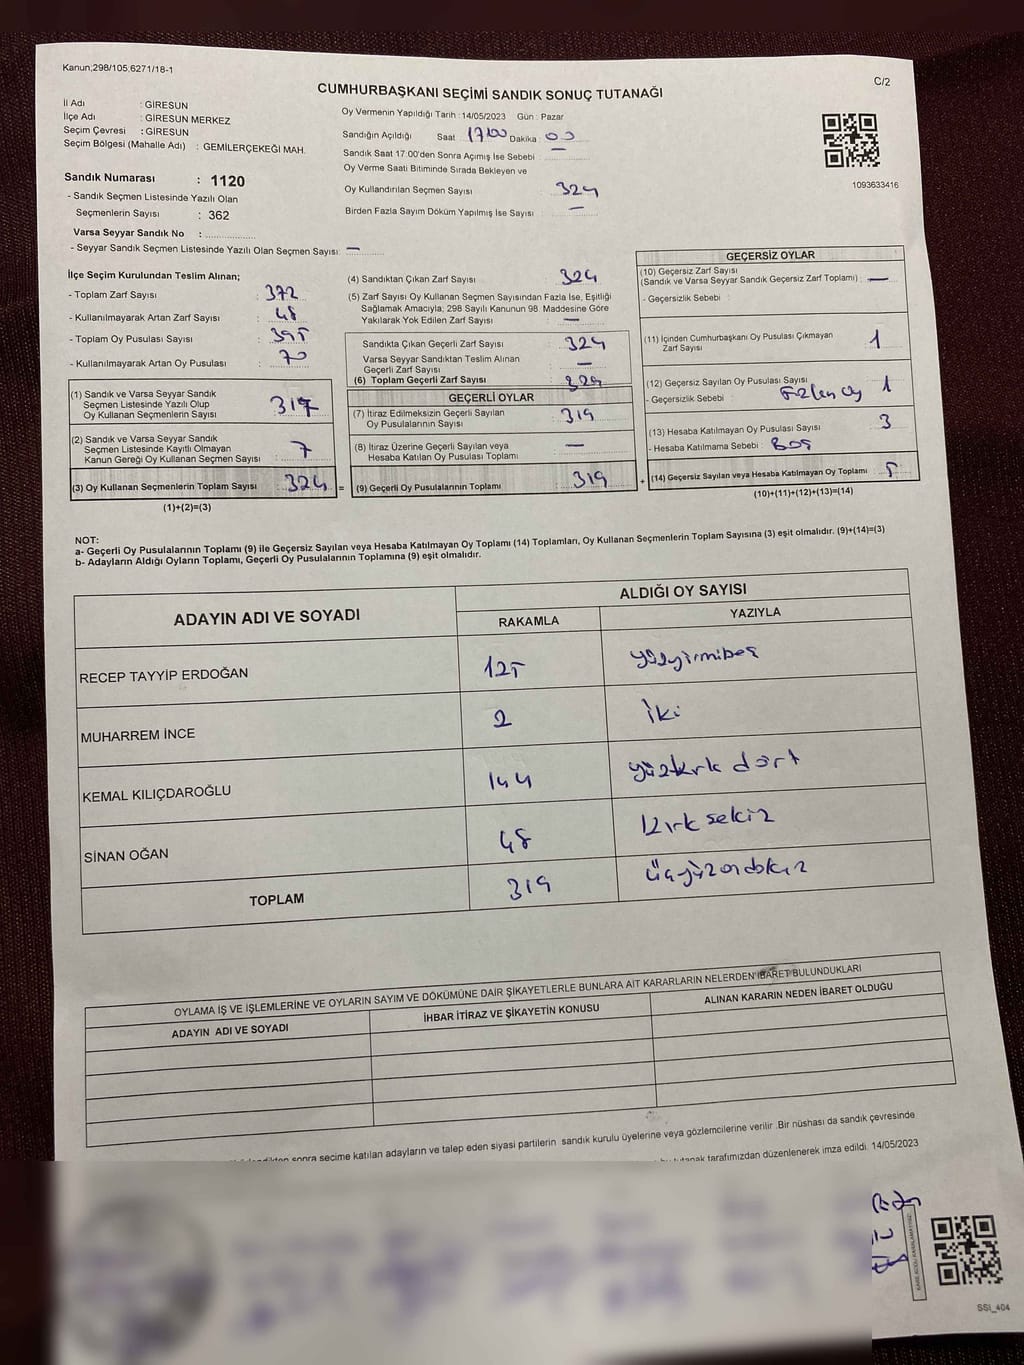 Kanun;298/105.6271/18-1
C/2
CUMHURBAŞKANI SEÇİMİ SANDIK SONUÇ TUTANAĞI
İl Adı : GİRESUN
İlçe Adı : GİRESUN MERKEZ
Seçim Çevresi : GİRESUN
Seçim Bölgesi (Mahalle Adı) : GEMİLERÇEKEĞİ MAH.
Sandık Numarası : 1120
- Sandık Seçmen Listesinde Yazılı Olan
Seçmenlerin Sayısı : 362
Varsa Seyyar Sandık No :
- Seyyar Sandık Seçmen Listesinde Yazılı Olan Seçmen Sayısı: —
Oy Vermenin Yapıldığı Tarih : 14/05/2023 Gün : Pazar
Sandığın Açıldığı Saat : 17:00 Dakika : 00
Sandık Saat 17:00'den Sonra Açımış İse Sebebi : —
Oy Verme Saati Bitiminde Sırada Bekleyen ve
Oy Kullandırılan Seçmen Sayısı 324
Birden Fazla Sayım Döküm Yapılmış İse Sayısı : —
1093633416
İlçe Seçim Kurulundan Teslim Alınan;
- Toplam Zarf Sayısı : 372
- Kullanılmayarak Artan Zarf Sayısı : 48
- Toplam Oy Pusulası Sayısı : 395
- Kullanılmayarak Artan Oy Pusulası : 70
(1) Sandık ve Varsa Seyyar Sandık
Seçmen Listesinde Yazılı Olup
Oy Kullanan Seçmenlerin Sayısı : 317
(2) Sandık ve Varsa Seyyar Sandık
Seçmen Listesinde Kayıtlı Olmayan
Kanun Gereği Oy Kullanan Seçmen Sayısı : 7
(3) Oy Kullanan Seçmenlerin Toplam Sayısı : 324 =
(1)+(2)=(3)
(4) Sandıktan Çıkan Zarf Sayısı : 324
(5) Zarf Sayısı Oy Kullanan Seçmen Sayısından Fazla İse, Eşitliği
Sağlamak Amacıyla; 298 Sayılı Kanunun 98. Maddesine Göre
Yakılarak Yok Edilen Zarf Sayısı : —
Sandıkta Çıkan Geçerli Zarf Sayısı : 324
Varsa Seyyar Sandıktan Teslim Alınan
Geçerli Zarf Sayısı : —
(6) Toplam Geçerli Zarf Sayısı : 324
GEÇERLİ OYLAR
(7) İtiraz Edilmeksizin Geçerli Sayılan
Oy Pusulalarının Sayısı : 319
(8) İtiraz Üzerine Geçerli Sayılan veya
Hesaba Katılan Oy Pusulası Toplamı : —
(9) Geçerli Oy Pusulalarının Toplamı : 319 +
GEÇERSİZ OYLAR
(10) Geçersiz Zarf Sayısı
(Sandık ve Varsa Seyyar Sandık Geçersiz Zarf Toplamı) : —
- Geçersizlik Sebebi :
(11) İçinden Cumhurbaşkanı Oy Pusulası Çıkmayan
Zarf Sayısı : 1
(12) Geçersiz Sayılan Oy Pusulası Sayısı : 1
- Geçersizlik Sebebi :
(13) Hesaba Katılmayan Oy Pusulası Sayısı : 3
- Hesaba Katılmama Sebebi : Boş
(14) Geçersiz Sayılan veya Hesaba Katılmayan Oy Toplamı : 5
(10)+(11)+(12)+(13)=(14)
NOT:
a- Geçerli Oy Pusulalarının Toplamı (9) ile Geçersiz Sayılan veya Hesaba Katılmayan Oy Toplamı (14) Toplamları, Oy Kullanan Seçmenlerin Toplam Sayısına (3) eşit olmalıdır. (9)+(14)=(3)
b- Adayların Aldığı Oyların Toplamı, Geçerli Oy Pusulalarının Toplamına (9) eşit olmalıdır.
ADAYIN ADI VE SOYADI
ALDIĞI OY SAYISI
RAKAMLA YAZIYLA
RECEP TAYYİP ERDOĞAN 125 yüzyirmibeş
MUHARREM İNCE 2 iki
KEMAL KILIÇDAROĞLU 144 yüzkırk dört
SİNAN OĞAN 48 kırk sekiz
TOPLAM 319 üçyüzondokuz
OYLAMA İŞ VE İŞLEMLERİNE VE OYLARIN SAYIM VE DÖKÜMÜNE DAİR ŞİKAYETLERLE BUNLARA AİT KARARLARIN NELERDEN İBARET BULUNDUKLARI
ADAYIN ADI VE SOYADI İHBAR İTİRAZ VE ŞİKAYETİN KONUSU ALINAN KARARIN NEDEN İBARET OLDUĞU
sonra seçime katılan adayların ve talep eden siyasi partilerin sandık kurulu üyelerine veya gözlemcilerine verilir .Bir nüshası da sandık çevresinde
tutanak tarafımızdan düzenlenerek imza edildi. 14/05/2023
SSI_404